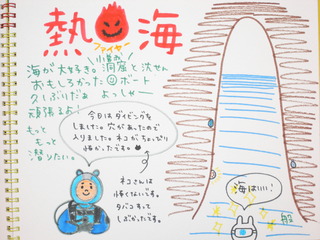 熱海
ファイヤー
海が大好き。小曽我洞窟と沈せん
おもしろかった ボート
久しぶりだぁ よっしゃー
頑張るよ!
もっと
もっと
潜りたい。
今日はダイビングを
しました。穴があったので
入りました。ネコがちょっぴり
怖かったです。
ネコさんは
怖くないです。
タバコすって
しぶかったです。
海はいい!
船